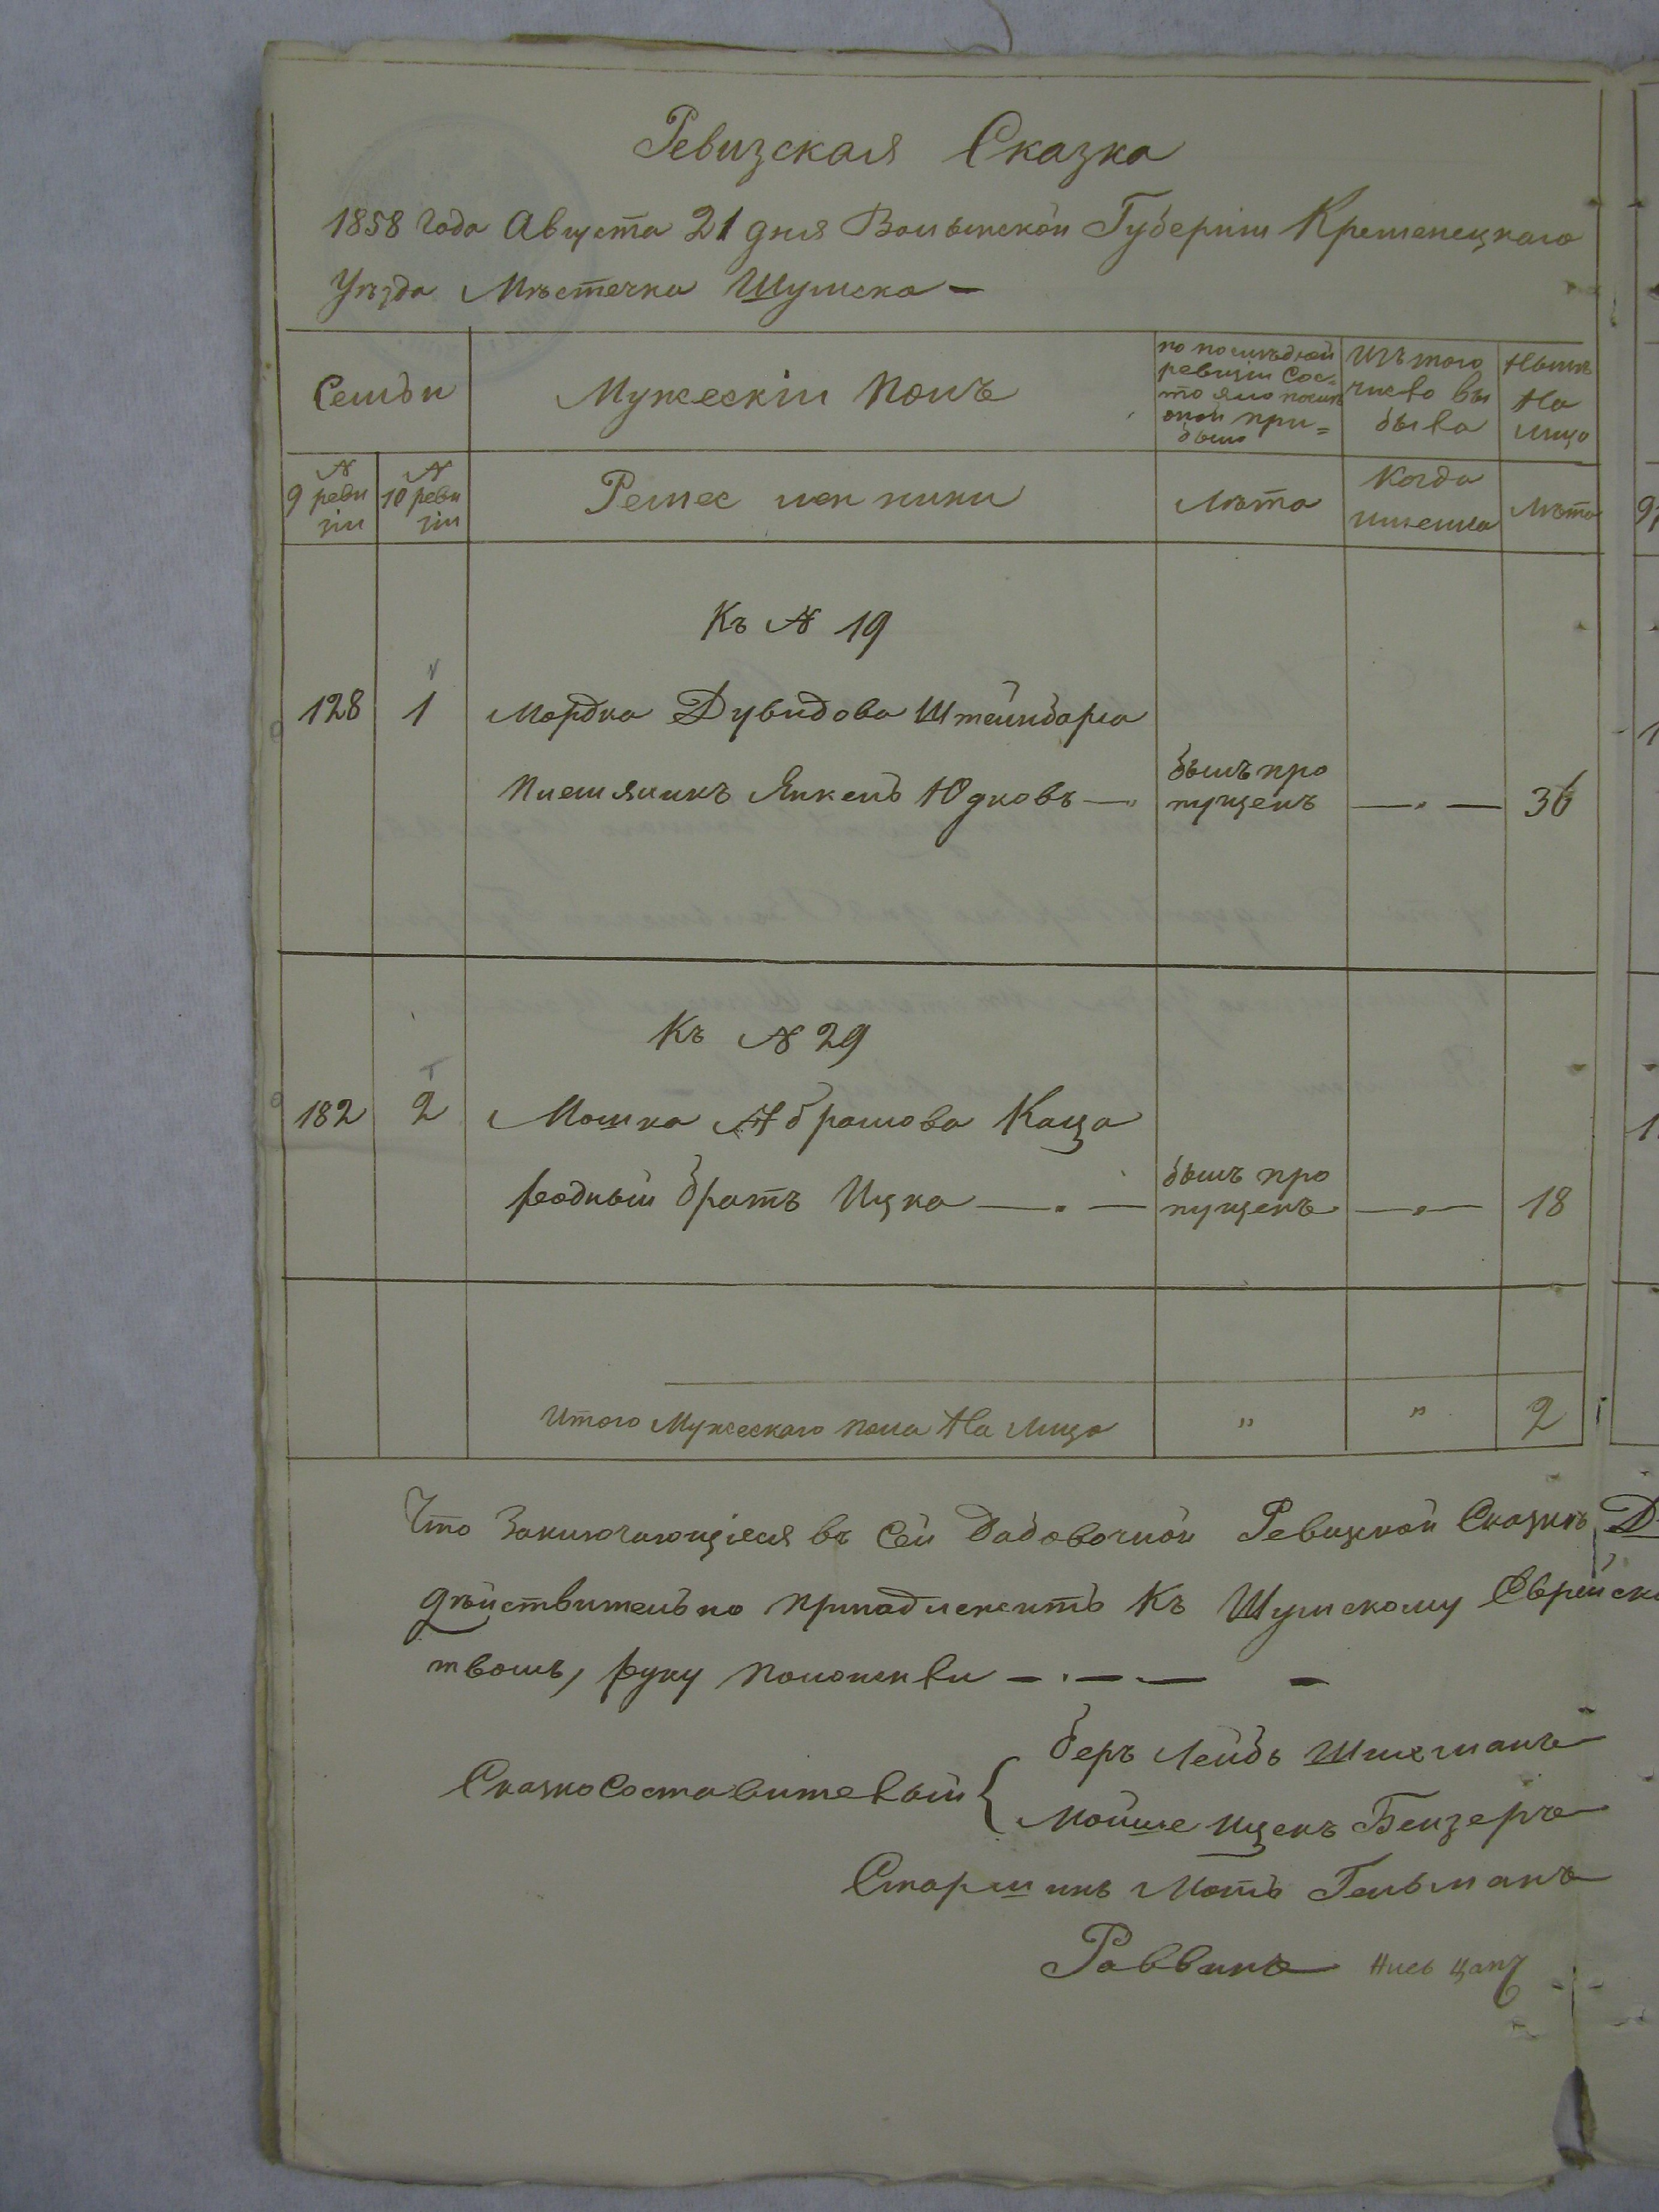 Ревизская Сказка
1858 года Августа 21 дня Волынской Губерніи Кременецкаго
Уѣзда Мѣстечка Шумска —
Семьи
Мужескій Полъ
по послѣдней
ревизіи сос=
тояло после
оной при=
было
Изъ того
число вы
было
Нынѣ
На
лицо
№
9 реви
зіи
№
10 реви
зіи
Ремесленники
Лѣта
Когда
именно
Лѣта
Къ № 19
128 1 Мордка Дувидова Штейнбарга
Племянникъ Янкель Юдковъ — былъ про
пущенъ — " — 36
Къ № 29
182 2 Мошка Абрамова Каца
родный братъ Ицка — . — былъ про
пущенъ — " — 18
Итого Мужескаго пола На лицо " " 2
Что Заключающіеся въ Сей Дабовочной Ревизкой Сказкѣ
дѣйствительно принадлежитъ Къ Шумскому Еврейск
твомъ, руку положили — . — — —
Сказкосоставителый
беръ Лейбъ Шихманъ
Мойше Ицекъ Бензеръ
Старшина Моть Гельманъ
Раввинъ